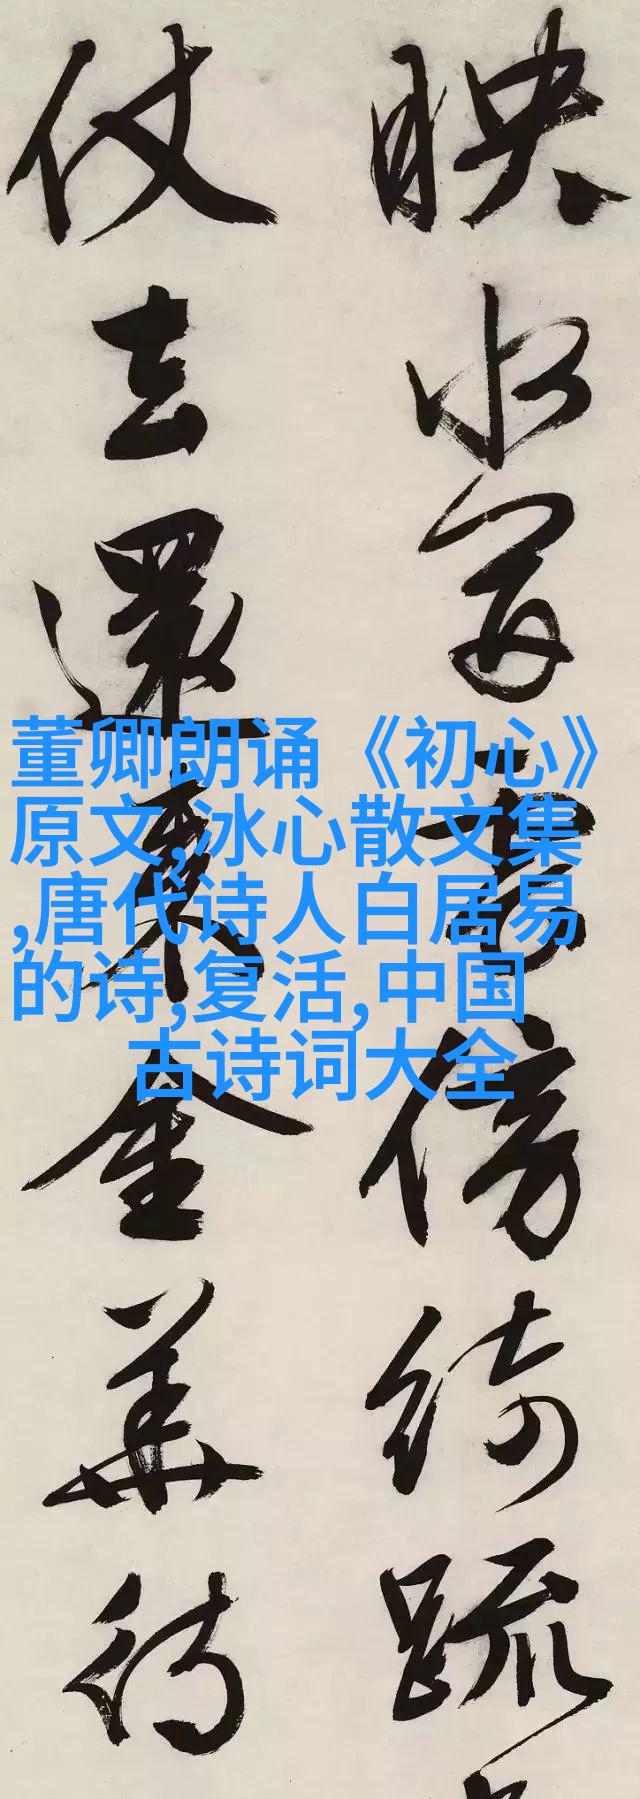 映水傍綺疏
仗去還金華待
董卿朗诵《初心》
原文,冰心散文集
,唐代诗人白居易
的诗,复活,中国
古诗词大全